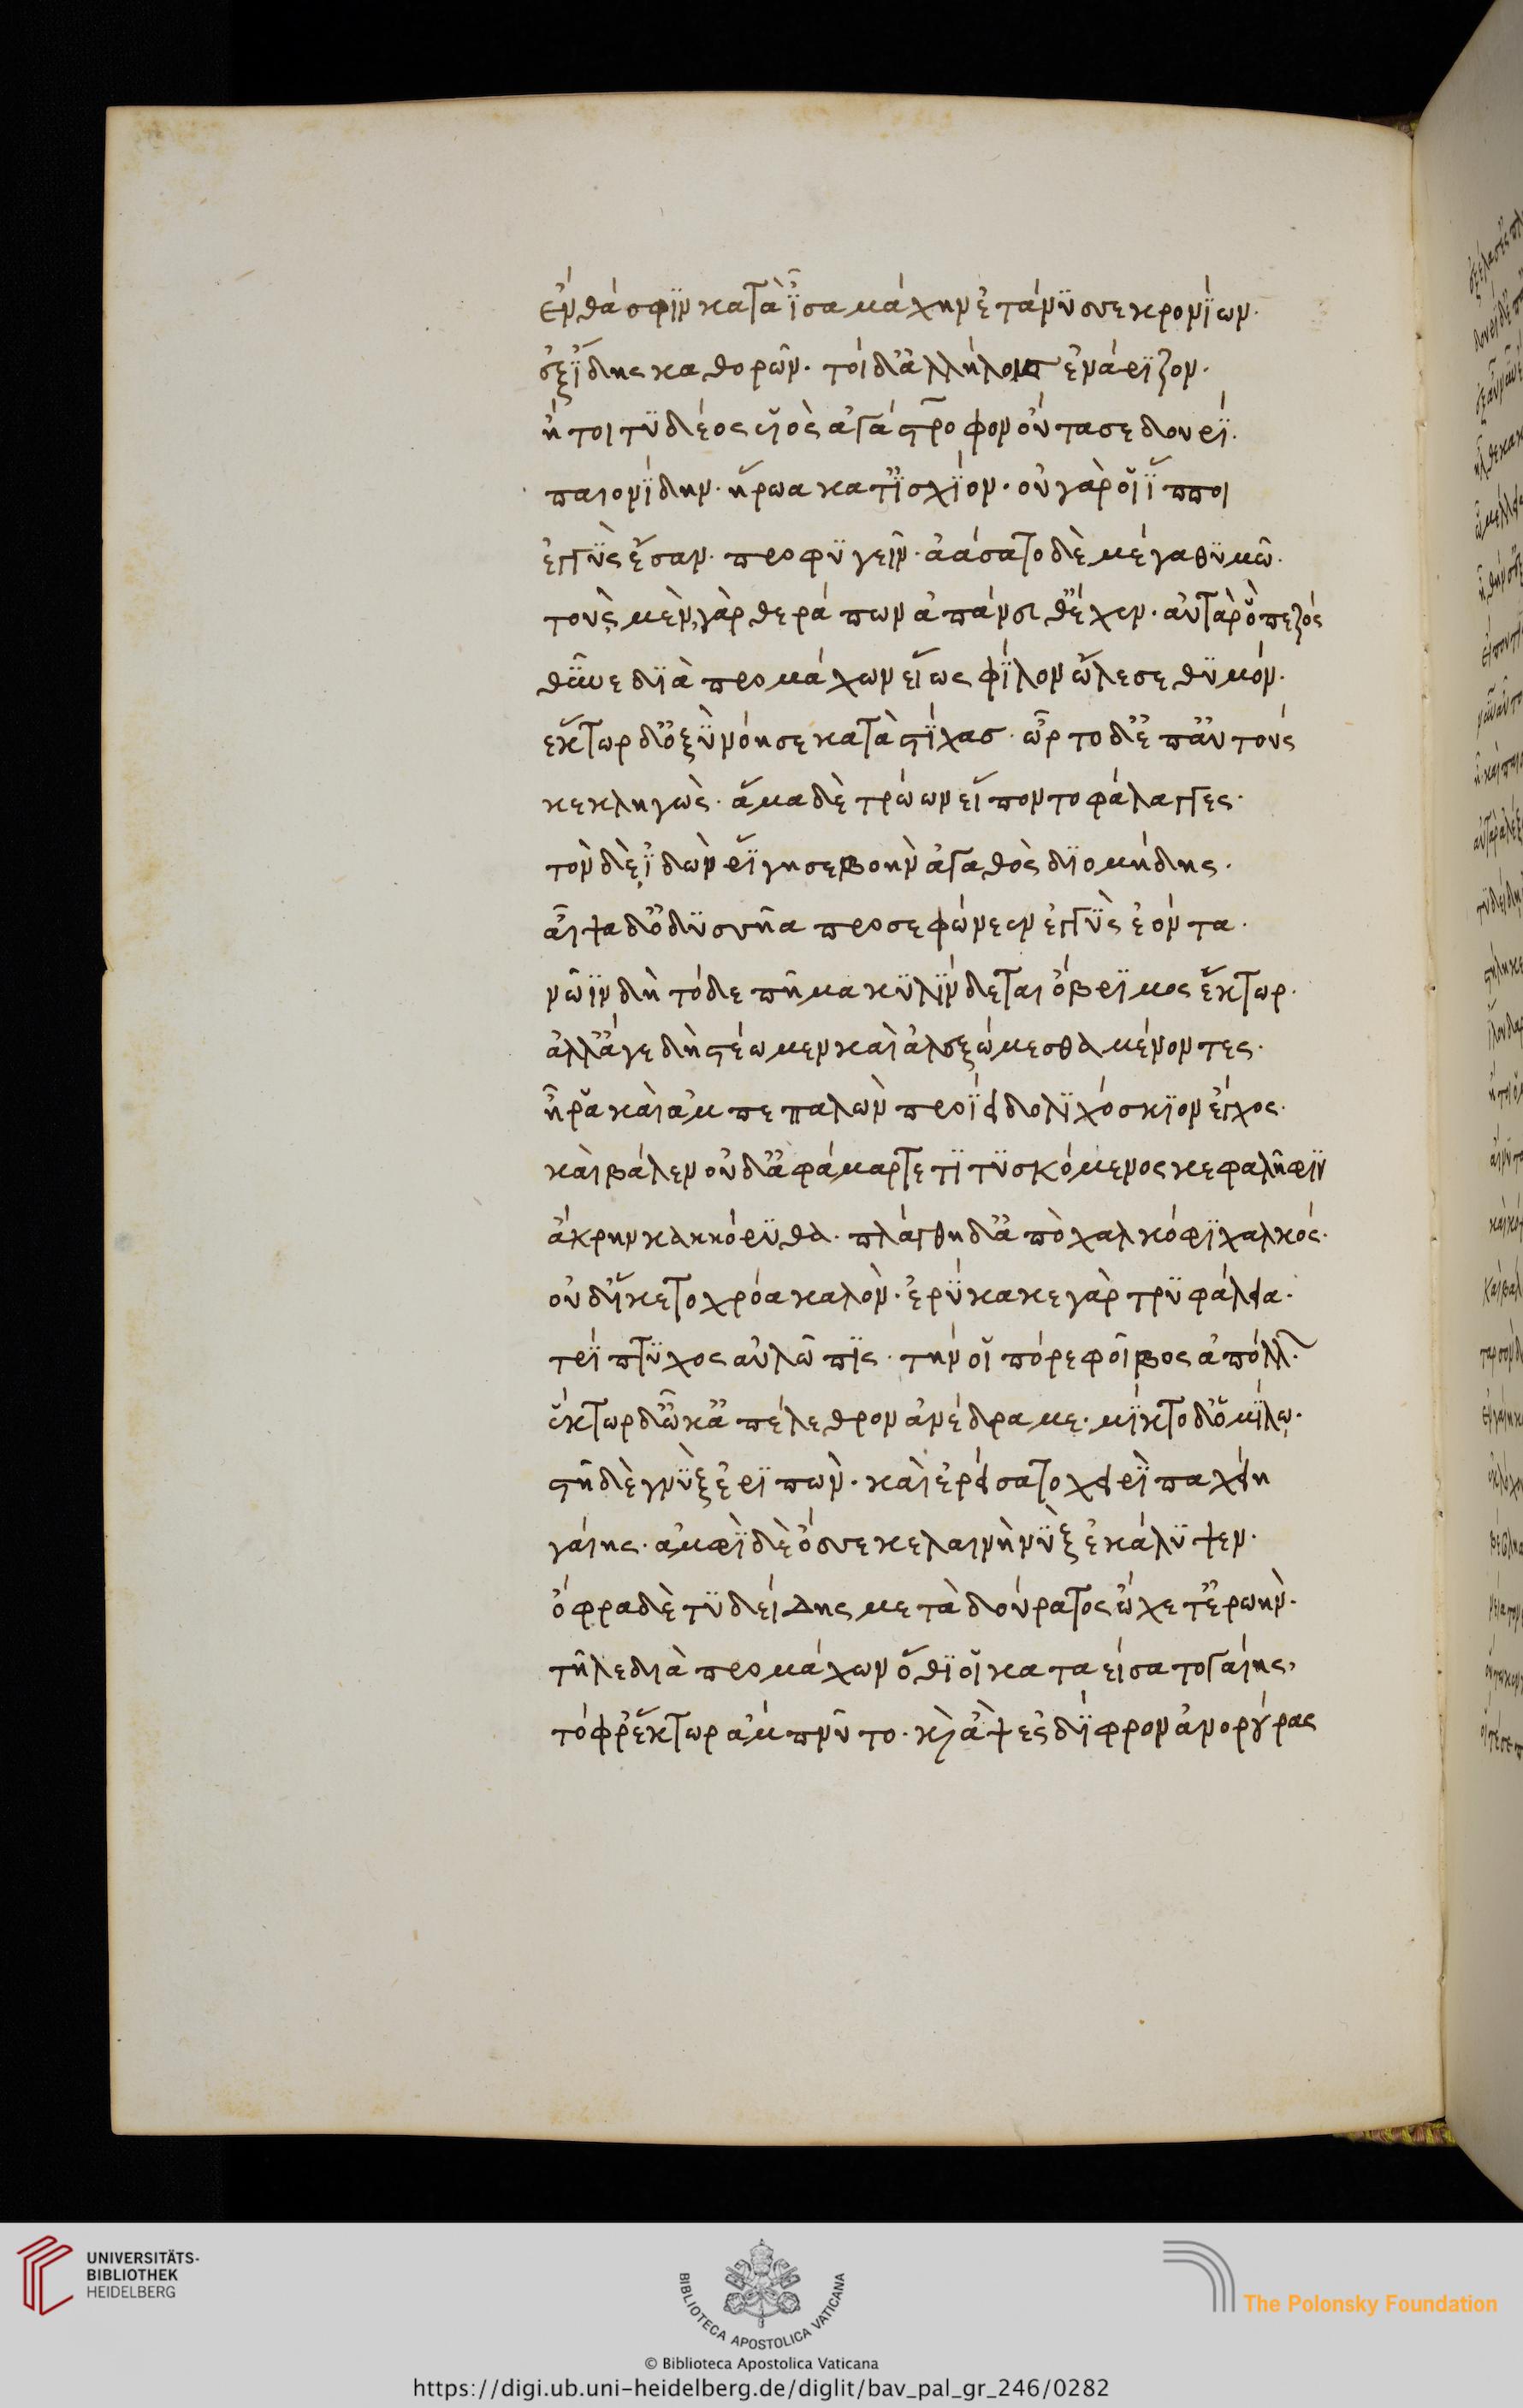 ἔνθά σφϊν κατὰ ἶ̈σα μάχην ἐτάνϋσσε κρονΐων.
ἐξ ἴ̈δης καθορῶν. τοὶ δ' ἀλλήλους ἐνάριζον.
ἤτοι τϋδέος υἱὸς ἀγάστροφον οὔτασε δουρΐ.
παιονΐδην. ἥρωα κατ' ἰ̈σχΐον. οὐ γάρ οἱ ἵ̈πποι
ἐγγῢς ἔσαν. προφϋγεῖν. ἀάσατο δὲ μέγα θϋμῶ.
τοὺς μὲν γὰρ θεράπων ἀπάνευθ' ἔχεν. αὐτὰρ ὁ πεζός
θῦνε δϊὰ προμάχων εἵως φΐλον ὤλεσε θϋμόν.
ἕκτωρ δ' ὀξῢ νόησε κατὰ στΐχας. ὦρτο δ' ἐπ' αὐτούς
κεκληγώς. ἅμα δὲ τρώων εἵποντο φάλαγγες.
τὸν δὲ ἰ̈δὼν ῥΐγησε βοὴν ἀγαθὸς δϊομήδης.
αἶψα δ' ὀδϋσσῆα προσεφώνεεν ἐγγῢς ἐόντα.
νῶϊν δὴ τόδε πῆμα κϋλΐνδεται ὄβρϊμος ἕκτωρ.
ἀλλ' ἄγε δὴ στέωμεν καὶ ἀλεξώμεσθα μένοντες.
ἦ ῥα καὶ ἀμπεπαλὼν προΐει δολϊχόσκϊον ἔγχος.
καὶ βάλεν οὐδ' ἀφάμαρτε τϊτϋσκόμενος κεφαλῆφϊν
ἄκρην κακκόρϋθα. πλάγθη δ' ἀπὸ χαλκόφϊ χαλκός.
οὐδ' ἵ̈κετο χρόα καλὸν. ἐρΰκακε γὰρ τρϋφάλεια.
τρΐπτϋχος αὐλῶπϊς. τήν οἱ πόρε φοῖβος ἀπόλλ.
ἕκτωρ δ' ὦκ' ἀπέλεθρον ἀνέδραμε. μΐκτο δ' ὁμΐλῳ.
στῆ δὲ γνῢξ ἐρϊπὼν. καὶ ἐρείσατο χειρὶ̈ παχείη
γαίης. ἀμφὶ̈ δὲ ὄσσε κελαινὴ νῢξ ἐκάλϋψεν.
ὄφρα δὲ τϋδείδης μετὰ δούρατος ὤχετ' ἐρωὴν.
τῆλε διὰ προμάχων ὅθϊ οἱ καταείσατο γαίης,
τόφρ' ἕκτωρ ἄμπνϋτο. κὶ ἂψ ἐς δΐφρον ἀνορούσας
UNIVERSITÄTS-
BIBLIOTHEK
HEIDELBERG
BIBLIOTECA APOSTOLICA VATICANA
The Polonsky Foundation
© Biblioteca Apostolica Vaticana
https://digi.ub.uni-heidelberg.de/diglit/bav_pal_gr_246/0282